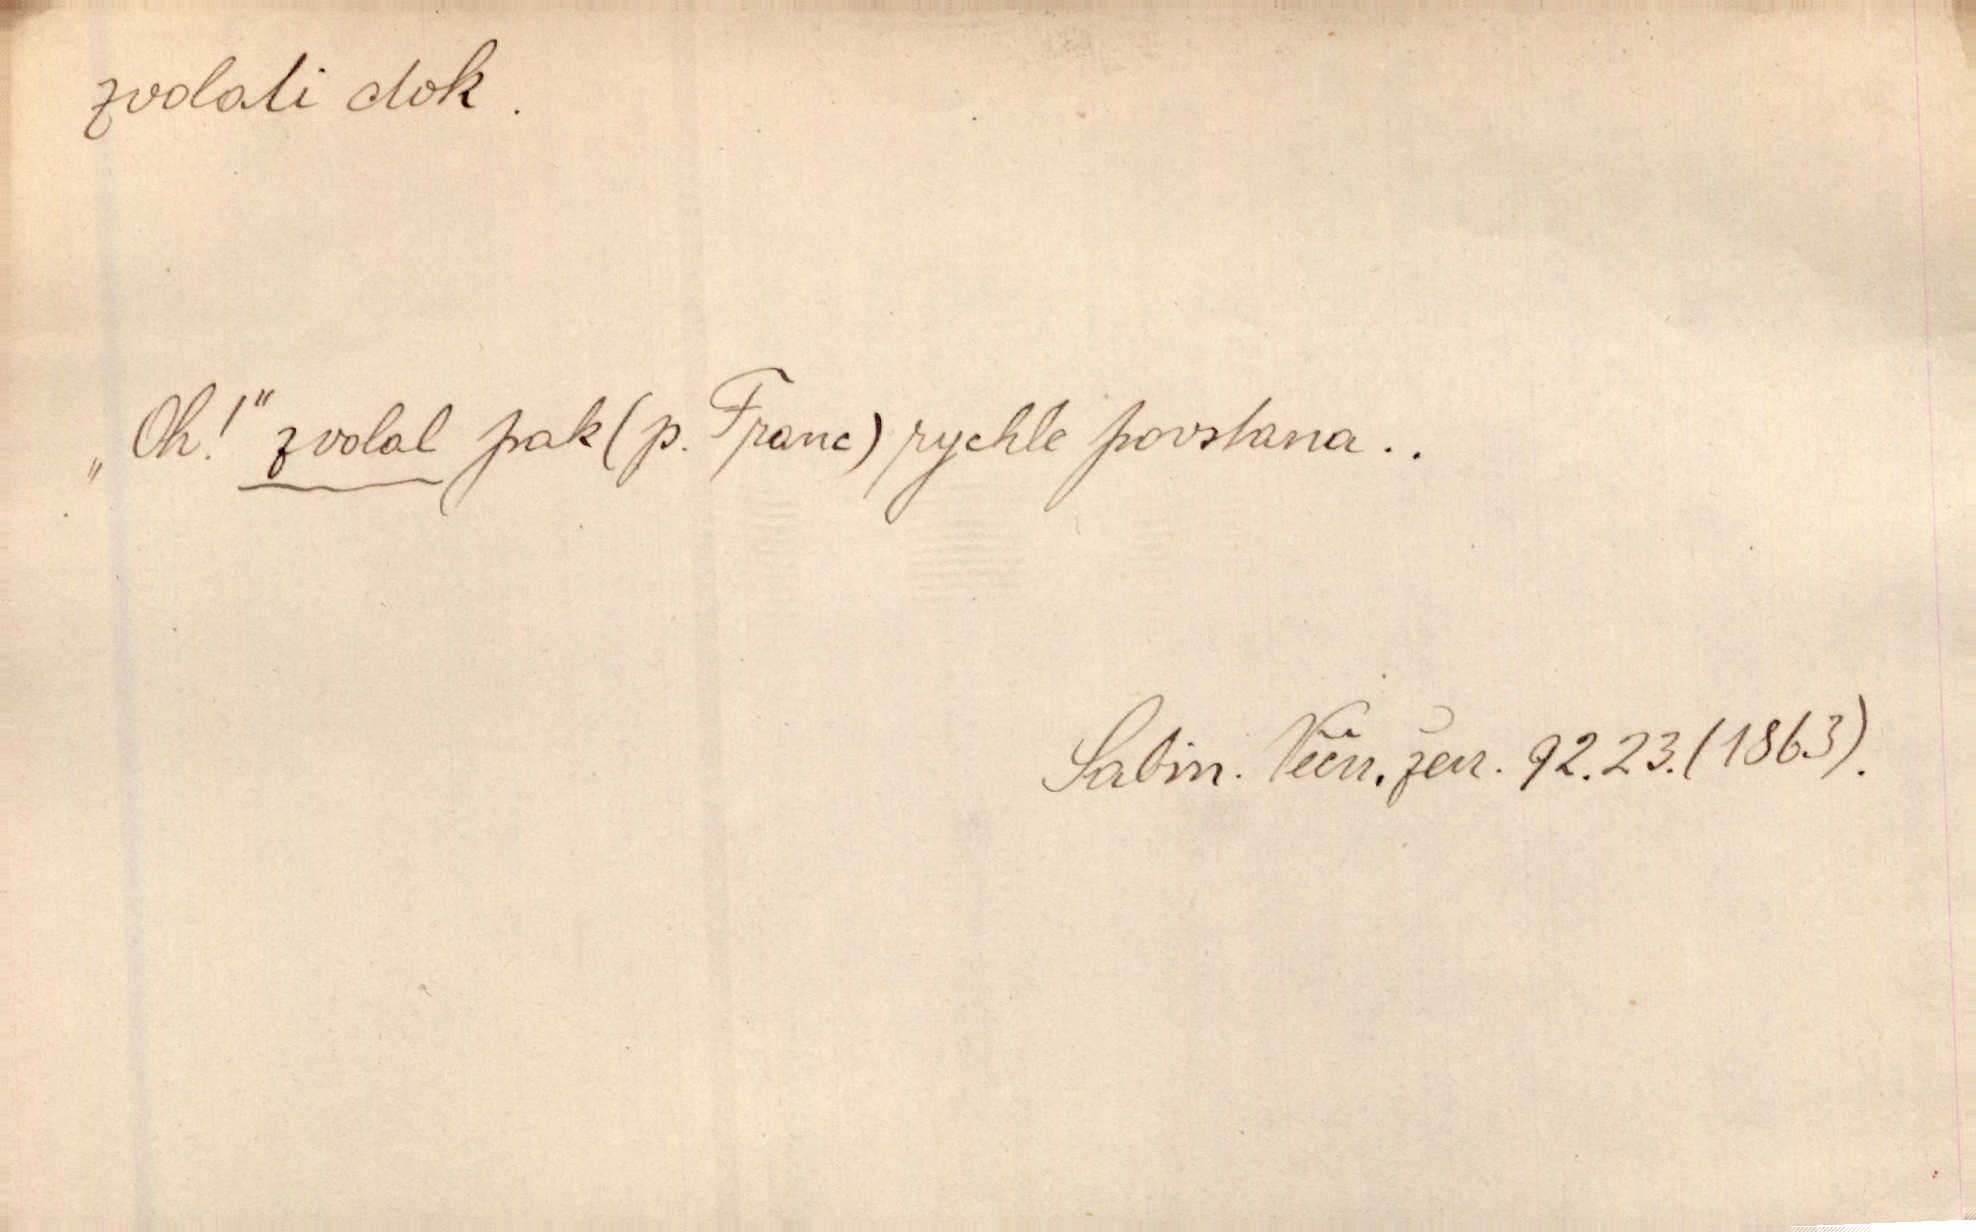 zvolati dok.
„Oh!" zvolal pak (p. Franc) rychle povstana..
Sabin. Věčn. žen. 92.23. (1863).